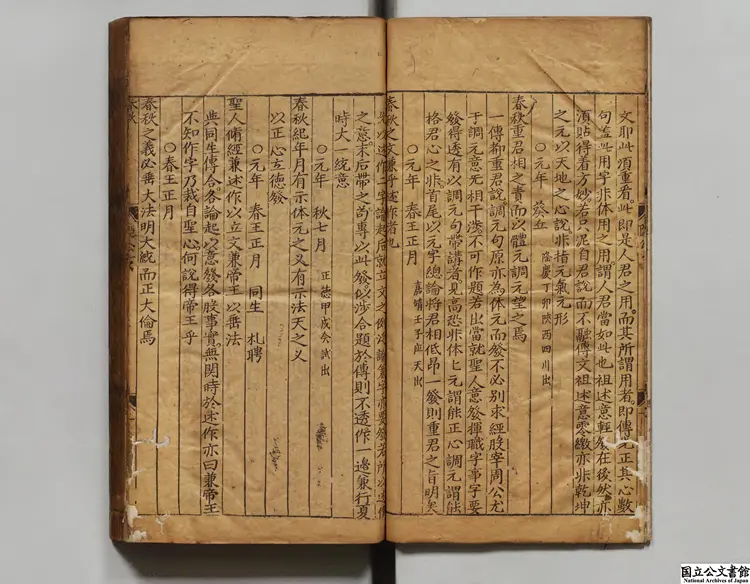 文耶此須重看此即是人君之用而其所謂用者即傳元正真心數
句盖此用字非体用之用謂人君當如此也祖述意輕發在後然亦
須貼得着方妙若只泥自君說而不融傳文祖述意零繳亦非乾坤
之元以天地之心說非指元氣元形
○元年 葵丘 隆慶丁卯陝西四川出
春秋重君相之責而以體元調元望之焉
一傳都重君說調元句原亦為体元而發不必別求經股宰周公尤
于調元意无相干淺不可作題若出當就聖人意發揮職字事字要
發得透有以調元句帶講者見高恐非体七元謂能正心調元謂能
格君心之非首尾以元字總論將君相低昂一發則重君之旨明矣
○元年 春王正月 嘉靖壬子應天出
春秋之文兼乎述作者也
之意末后帶之尚專以此發似涉合題於傳則不透作一邊兼行夏
時大一統意
○元年 秋七月 正德甲戌会試出
春秋紀年月有示体元之义有示法天之义
以正心立德發
○元年 春王正月 同生 札聘
聖人脩經兼述作以立文兼帝王以垂法
與同生傳合各論起以意發各股事實無閑時於述作亦曰兼帝王
不知作字乃裁自聖心何說得帝王乎
○春王正月
春秋之義必垂大法明大統而正大倫焉
国立公文書館
National Archives of Japan